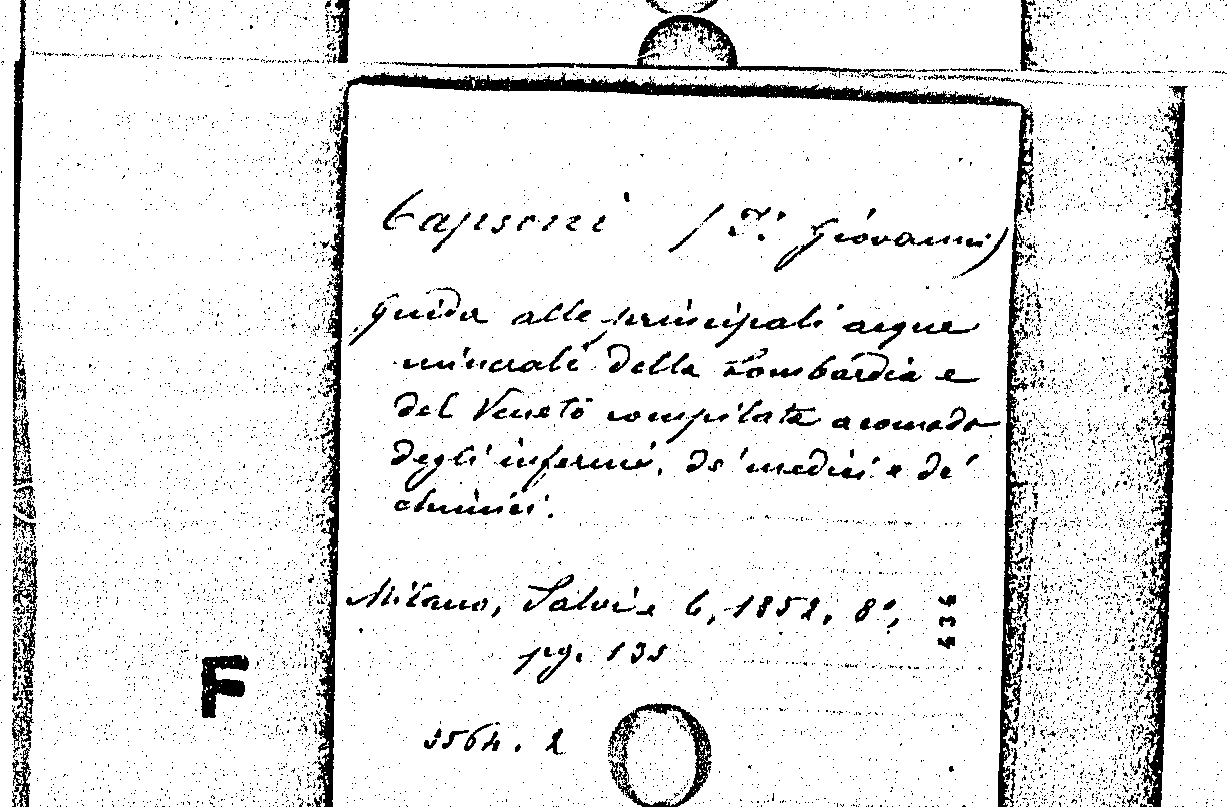 Capsoni (D.r Giovanni)
Guida alle principali acque
minerali della Lombardia e
del Veneto compilata a comodo
degli infermi, de' medici e de'
chimici.
Milano, Salvi e C, 1852, 8°,
pg. 135
3564. 2
F